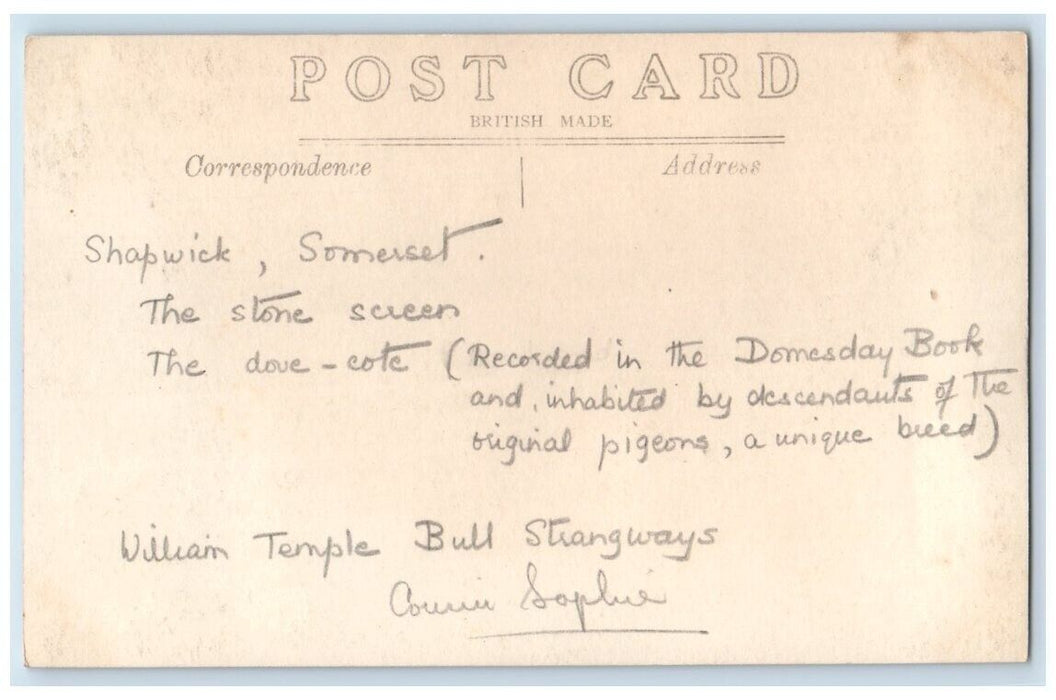 POST CARD
BRITISH MADE
Correspondence
Address
Shapwick, Somerset.
The stone screen
The dove-cote (Recorded in the Domesday Book
and inhabited by descendants of the
original pigeons, a unique breed)
William Temple Bull Strangways
Cousin Sophie